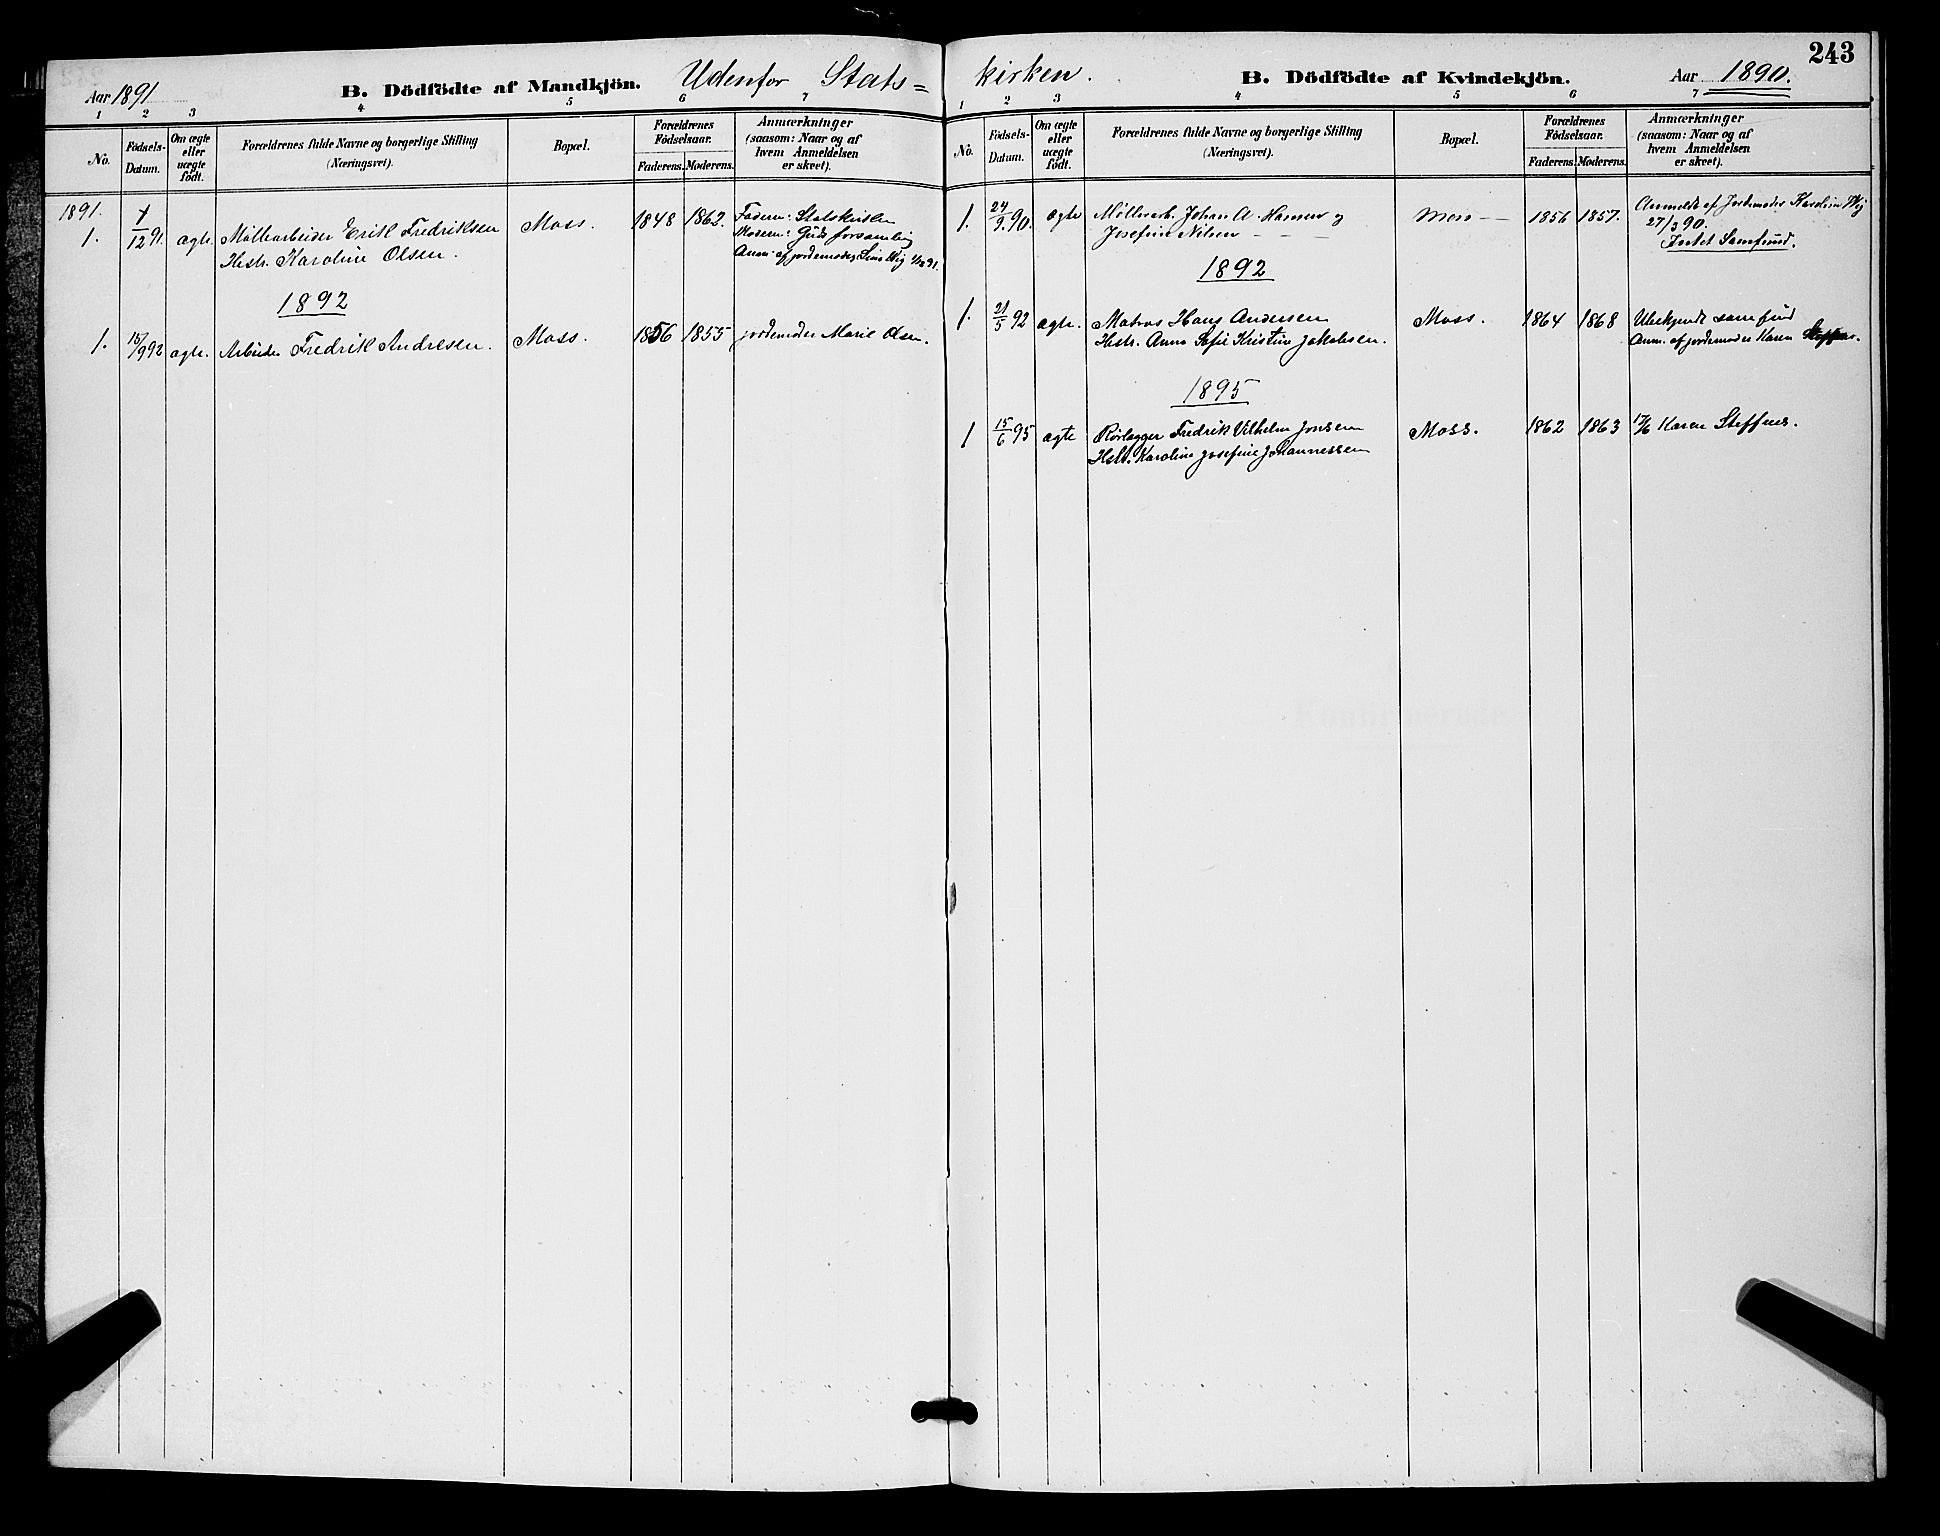 Aar 1891
B. Dödfödte af Mandkjön.
Udenfor Stats=
1 2 3 4 5 6 7
No.
Födsels-Datum.
Om ægte eller uægte födt.
Forældrenes fulde Navne og borgerlige Stilling (Næringsvei).
Bopæl.
Forældrenes Födselsaar.
Faderens. Moderens.
Anmærkninger (saasom: Naar og af hvem Anmeldelsen er skeet).
1891.
1. 1/12 91. ægte. Møllearbeider Erik Fredriksen Moss. 1848 1862. Faderen: Statskirken
Hstr. Karoline Olsen. Moderen: Guds forsamling
Anm. af jordemoder Wig 91.
1892
1. 15/9 92 ægte. Arbeider Fredrik Andresen. Moss. 1856 1855 jordemoder Marie Olsen.
kirken.
B. Dödfödte af Kvindekjön.
Aar 1890.
243
1 2 3 4 5 6 7
No.
Födsels-Datum.
Om ægte eller uægte födt.
Forældrenes fulde Navne og borgerlige Stilling (Næringsvei).
Bopæl.
Forældrenes Födselsaar.
Faderens. Moderens.
Anmærkninger (saasom: Naar og af hvem Anmeldelsen er skeet).
1. 24/9. 90. ægte Møllerarb. Johan A. Hansen og Moss 1856 1857. Anmeldt af Jordemoder Karoline Wig
Josefine Nilsen 27/3 90.
Intet Samfund.
1892
1. 21/5 92 ægte. Matros Hans Andersen Moss. 1864 1868 Ubekjendt samfund
Hstr. Anna Sofie Kristine Jakobsen. Anm. af jordemoder Karen Steffens.
1895
1 15/6 95 ægte Rørlægger Fredrik Vilhelm Jonsen Moss. 1862 1863 17/6 Karen Steffens.
Hstr. Karoline Josefine Johannessen